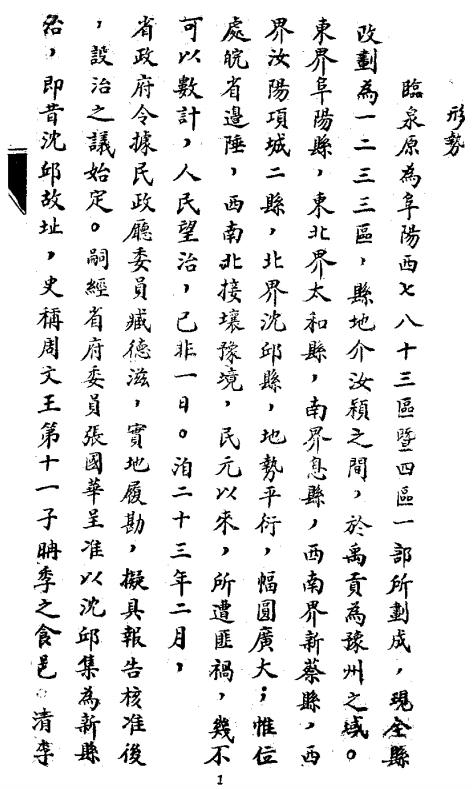 形勢
臨泉原為阜陽西七八十三區暨四區一部所劃成，現全縣
改劃為一二三三區，縣地介汝潁之間，於禹貢為豫州之域。
東界阜陽縣，東北界太和縣，南界息縣，西南界新蔡縣，西
界汝陽項城二縣，北界沈邱縣，地勢平衍，幅圓廣大；惟位
處皖省邊陲，西南北接壤豫境，民元以來，所遭匪禍，幾不
可以數計，人民望治，已非一日。洎二十三年二月，
省政府令據民政廳委員臧德滋，實地履勘，擬具報告核准後
，設治之議始定。嗣經省府委員張國華呈准以沈邱集為新縣
治，即昔沈邱故址，史稱周文王第十一子聃季之食邑。清李
1